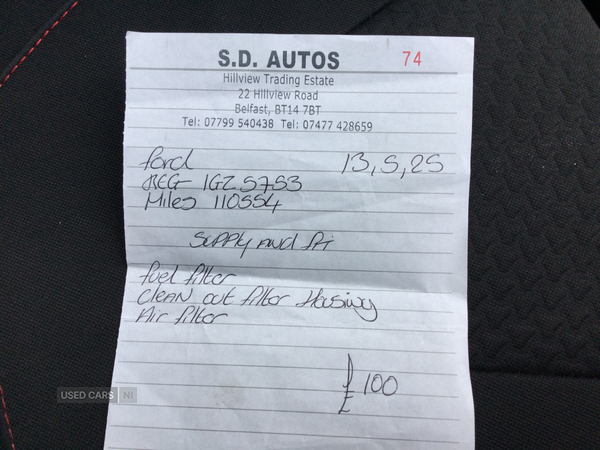 S.D. AUTOS 74
Hillview Trading Estate
22 Hillview Road
Belfast, BT14 7BT
Tel: 07799 540438 Tel: 07477 428659
Ford 13,5,25
REG IGZ 5753
Miles 110554
Supply and fit
fuel filter
CLEAN out filter Housing
Air filter
£100
USED CARS NI